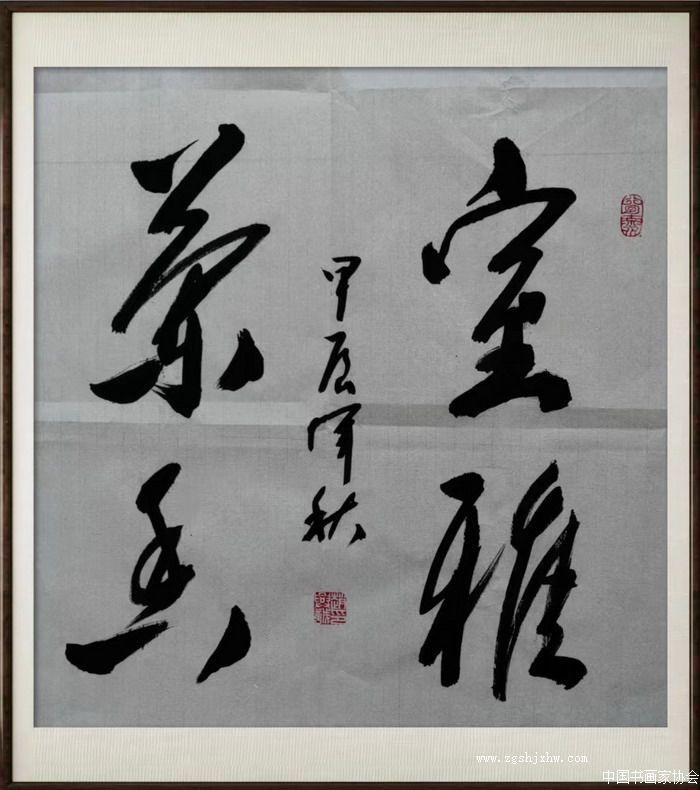 室雅
蘭香
甲辰
秋
www.zgshjxhw.com
中国书画家协会